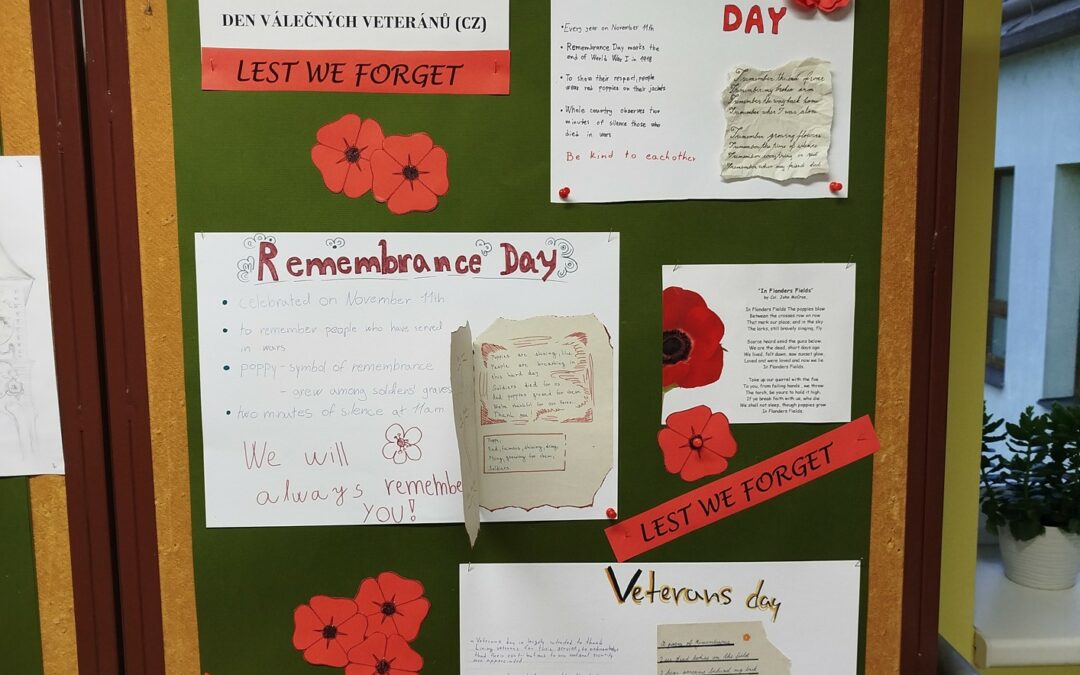 DEN VÁLEČNÝCH VETERÁNŮ (CZ)
LEST WE FORGET
DAY
• Every year on November 11th
• Remembrance Day marks the
end of World War I in 1918
• To show their respect, people
wear red poppies on their jackets
• Whole country observes two
minutes of silence those who
died in wars
Be kind to eachother
I remember
I remember my broken arm
I remember the way back home
I remember when I was alone
I remember growing flowers
I remember the time of
I remember everything in red
I remember when my friend died
Remembrance Day
• celebrated on November 11th
• to remember people who have served
in wars
• poppy - symbol of remembrance
- grew among soldiers' graves
• two minutes of silence at 11am
We will
always remembe
YOU!
Poppies are shining, like
People are
this hard day
Soldiers died for us
And poppies ground for them
Thank you
Poppy,
Red, famous, shining,
growing for them,
Soldiers
"In Flanders Fields"
by Col. John McCrae
In Flanders Fields The poppies blow
Between the crosses row on row
That mark our place; and in the sky
The larks, still bravely singing, fly
Scarce heard amid the guns below.
We are the dead, short days ago
We lived, felt dawn, saw sunset glow,
Loved and were loved and now we lie
In Flanders Fields.
Take up our quarrel with the foe
To you, from failing hands, we throw
The torch, be yours to hold it high.
If ye break faith with us, who die
We shall not sleep, though poppies grow
In Flanders Fields.
LEST WE FORGET
Veterans day
- Veterans day is largely intended to thank
living veterans for their service, to acknowledge
that their contributions to our national security
are appreciated
A poem of Remembrance
I see dead bodies on the field
I hear screams behind my back